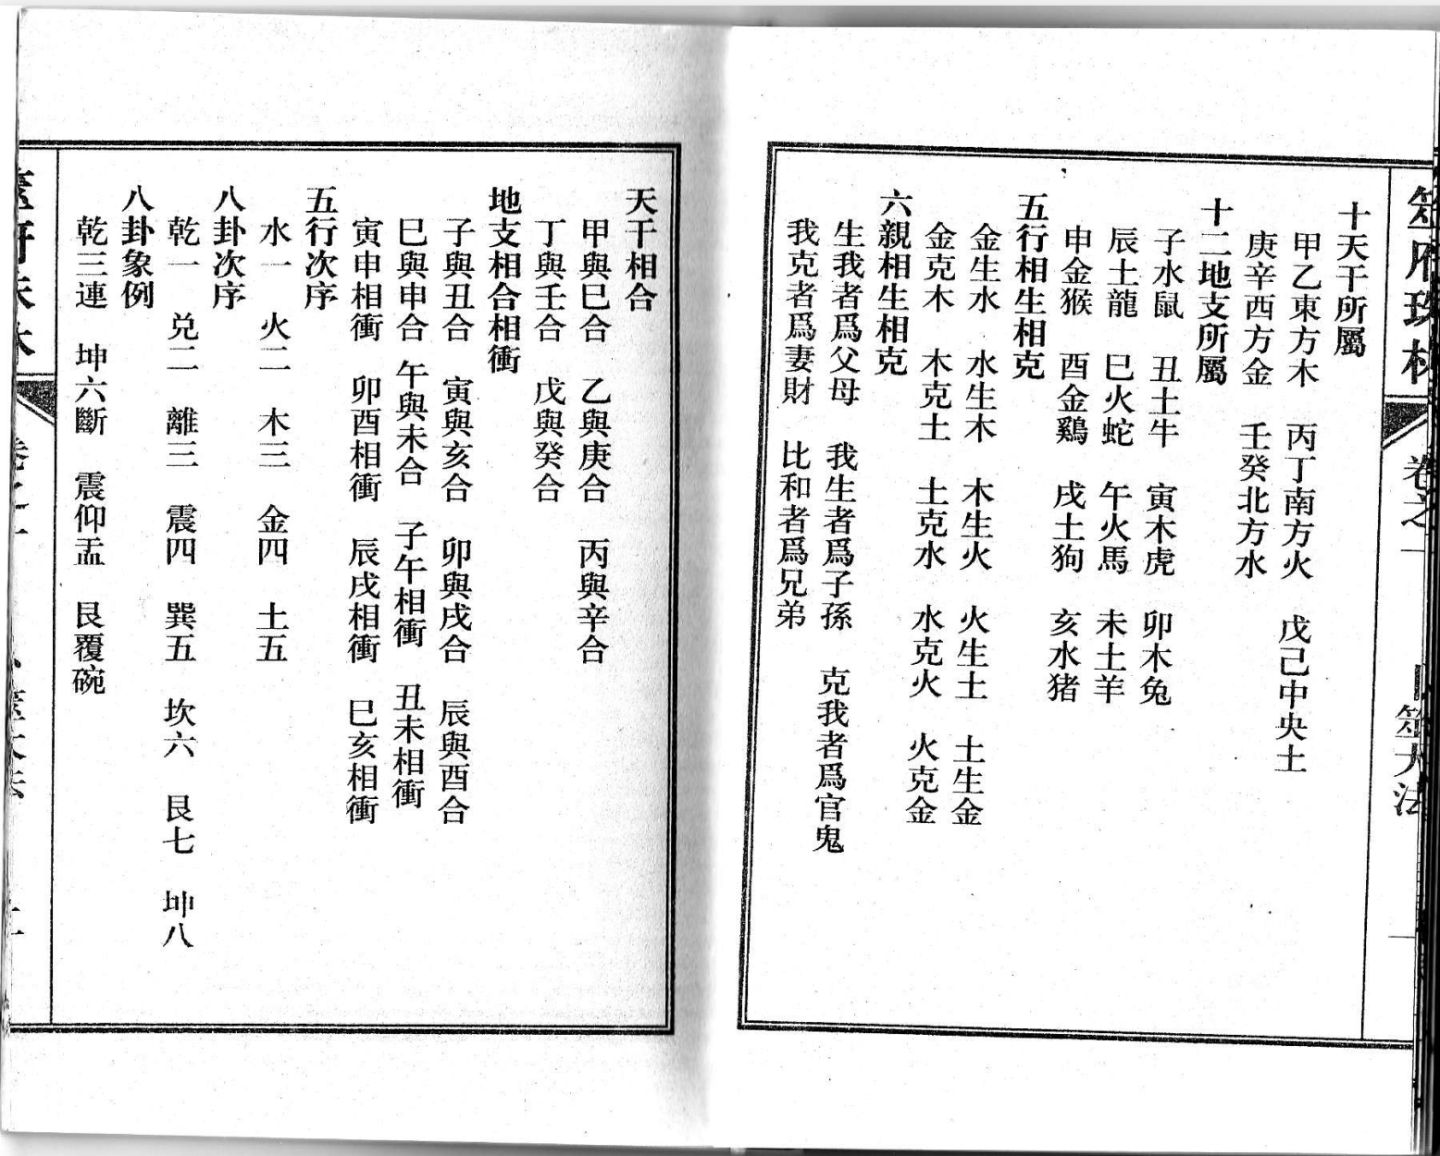 筮府珠林
卷之一
筮大法
十天干所屬
甲乙東方木 丙丁南方火 戊己中央土
庚辛西方金 壬癸北方水
十二地支所屬
子水鼠 丑土牛 寅木虎 卯木兔
辰土龍 巳火蛇 午火馬 未土羊
申金猴 酉金鷄 戌土狗 亥水猪
五行相生相克
金生水 水生木 木生火 火生土 土生金
金克木 木克土 土克水 水克火 火克金
六親相生相克
生我者爲父母 我生者爲子孫 克我者爲官鬼
我克者爲妻財 比和者爲兄弟
天干相合
甲與巳合 乙與庚合 丙與辛合
丁與壬合 戊與癸合
地支相合相衝
子與丑合 寅與亥合 卯與戌合 辰與酉合
巳與申合 午與未合 子午相衝 丑未相衝
寅申相衝 卯酉相衝 辰戌相衝 巳亥相衝
五行次序
水一 火二 木三 金四 土五
八卦次序
乾一 兑二 離三 震四 巽五 坎六 艮七 坤八
八卦象例
乾三連 坤六斷 震仰盂 艮覆碗